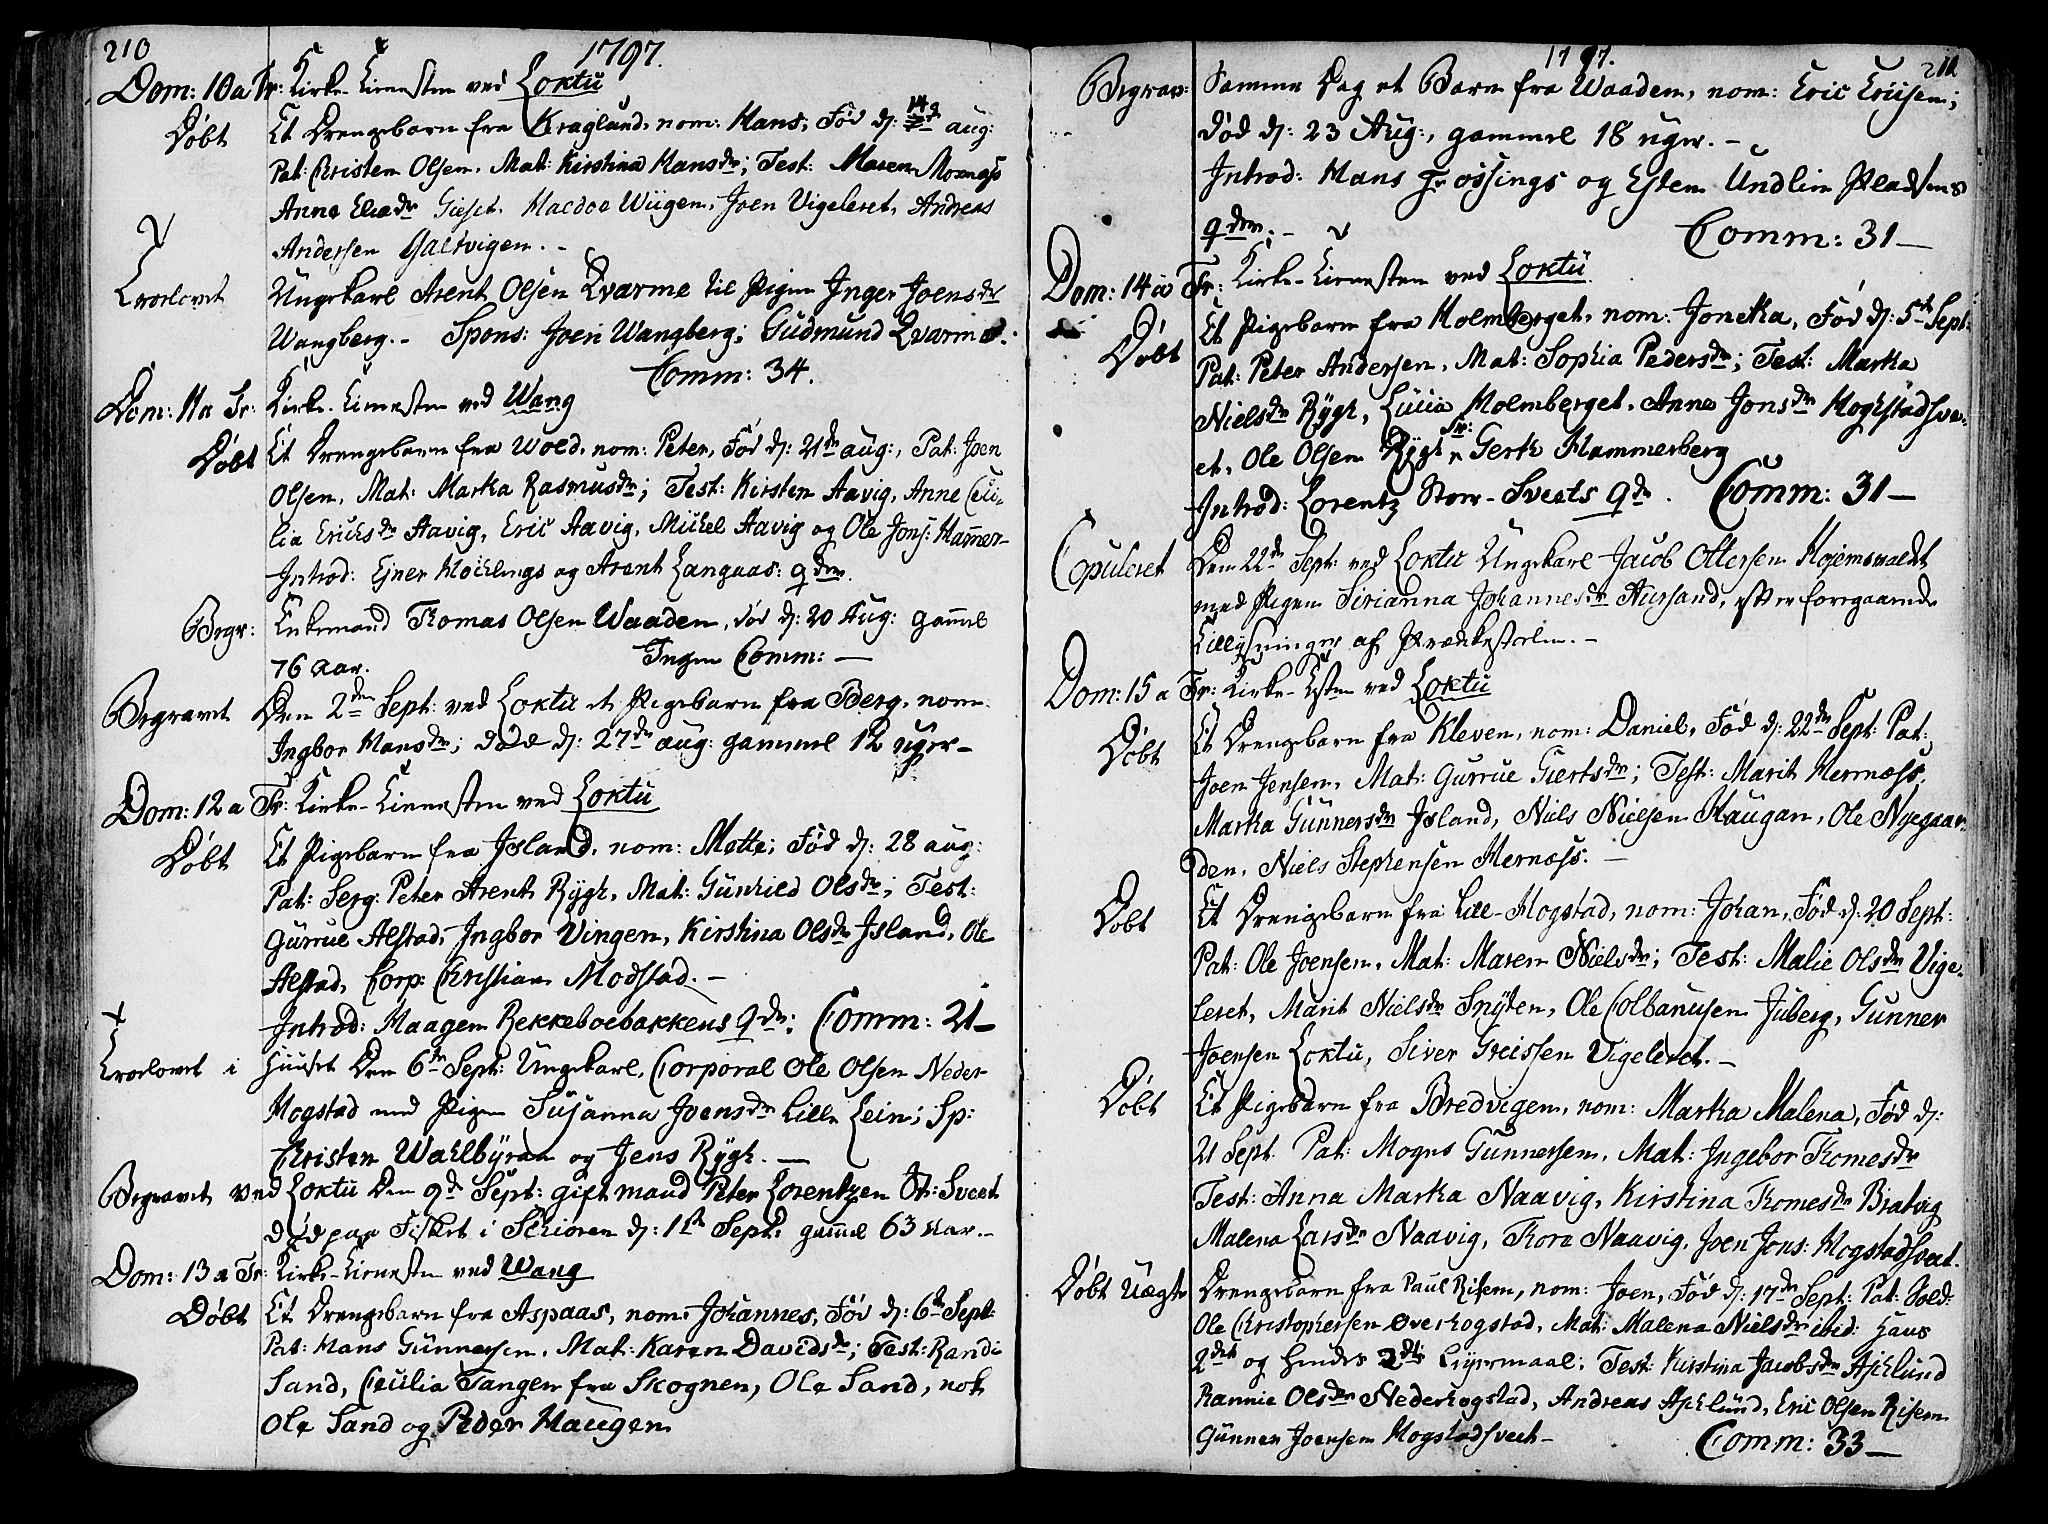 210
1797.
Dom: 10 a Tr: Kirke-Tienesten ved Loktu
Døbt Et Drengebarn fra Kraglund, nom: Hans, Fød d: 14de aug:
Pat: Christen Olsen, Mat: Kirstina Hansdr; Test: Maren Moxnæss
Anne Gieset, Wiigen, Joen Vigeleret, Andreas
Andersen Galtvigen. -
Trolovet Ungekarl Arent Olsen Qvarme til Pigen Inger Joensdr
Wangberg. - Spons: Joen Wangberg; Gudmund Qvarme.
Comm: 34.
Dom: 11 a Tr: Kirke-Tienesten ved Wang
Døbt Et Drengebarn fra Wold, nom: Peter, Fød d: 21de aug:, Pat: Joen
Olsen, Mat: Marha Rasmusdr; Test: Kirsten Aavig, Anne Ceci-
lia Ericksdr Aavig, Eric Aavig, Michel Aavig og Ole Jons: Hamer-
Introd: Ejner Høiklings og Arent Langaas: qdr.
Begr: Enkemand Thomas Olsen Waaden, død d: 20 Aug: gaml
76 Aar. Ingen Comm: —
Begravet Den 2den Sept: ved Loktu et Pigebarn fra Berg, nom:
Ingbor Hansdr; døde d: 27de aug: gammel 12 uger -
Dom: 12 a Tr: Kirke-Tienesten ved Loktu
Døbt Et Pigebarn fra Island, nom: Mette, Fød d: 28 aug:
Pat: Serg: Peter Arent Rygh, Mat: Gunhild Olsdr; Test:
Gurrue Alstad, Ingbor Vingen, Kirstina Olsdr Island, Ole
Alstad, Corp: Christian Modstad. -
Introd: Haagen Rekkeboebakkens qdr; Comm: 21 -
Trolovet i Huuset Den 6te Sept: Ungekarl, Corporal Ole Olsen Neder
Hogstad med Pigen Susanna Joensdr Lille Lein; Sp:
Christen Wahlbyraa og Jens Rygh. —
Begravet ved Loktu Den 9de Sept: gift mand Peter Lorentzen St: Sveet
død paa Fisket i d: 1ste Sept: gaml 63 aar. -
Dom: 13 a Tr: Kirke-Tienesten ved Wang
Døbt Et Drengebarn fra Aspaas, nom: Johannes, Fød d: 6te Sept:
Pat: Hans Gunnersen, Mat: Karen Davidsdr; Test: Randi
Sand, Cecilia Tangen fra Skognen, Ole Sand, nok
Ole Sand og Peder Haugen
1797.
211
Begrav: Samme Dag et Barn fra Waaden, nom: Eric Ericsen;
død d: 23 Aug:, gammel 18 uger. -
Introd: Hans Frossings og Esten Undlin Pladsens
qdrr. - Comm: 31 —
Dom: 14 a Tr: Kirke-Tienesten ved Loktu
Døbt Et Pigebarn fra Holmberget, nom: Joneka, Fød d: 5te Sept:
Pat: Peter Andersen, Mat: Sophia Pedersdr; Test: Marha
Nielsdr Rygh, Lucia Holmberget, Anne Jonsdr Hoghstadsve-
et, Ole Olsen Rygh, Gerh Hammerberg
Introd: Lorentz Stor-Sveets qdr. Comm: 31 —
Copuleret Den 22de Sept: ved Loktu Ungekarl Jacob Ottersen Hojemsvaldt
med Pigen Sirianna Johannesdr Aursand, efter foregaaende
Tillysninger af Prædikestolen. -
Dom: 15 a Tr: Kirke-Tsten ved Loktu
Døbt Et Drengebarn fra Kleven, nom: Daniel, Fød d: 22de Sept: Pat:
Joen Jensen, Mat: Gurrue Giertsdr; Test: Marit Hernæss,
Marha Gunnersdr Island, Niels Nielsen Haugan, Ole Nyegaar-
den, Niels Stephensen Hernæss. —
Døbt Et Drengebarn fra Lill-Hogstad, nom: Johan, Fød d: 20 Sept:
Pat: Ole Joensen, Mat: Maren Nielsdr; Test: Malie Olsdr Vige-
leret, Marit Nielsdr Snyten, Ole Colbanusen Juberg, Gunner
Joensen Loktu, Siver Greissen Vigeleret. -
Døbt Et Pigebarn fra Bredvigen, nom: Marha Malena, Fød d:
21 Sept Pat: Mogns Gunnersen, Mat: Ingebor Thomesdr
Test: Anna Marha Naavig, Kirstina Thomesdr Bratvig
Malena Larsdr Naavig, Thore Naavig, Joen Jons: Hogstadsveet.
Døbt Uægte Drengebarn fra Paul Risem, nom: Joen, Fød d: 17de Sept: Pat: Sold:
Ole Christophersen Overhogstad, Mat: Malena Nielsdr ibid: hans
2det og hendes 2det Leyermaal; Test: Kirstina Jacobsdr Asklund
Rannie Olsdr Nederhogstad, Andreas Asklund, Eric Olsen Risem
Gunner Joensen Hogstadsveet - Comm: 33 —